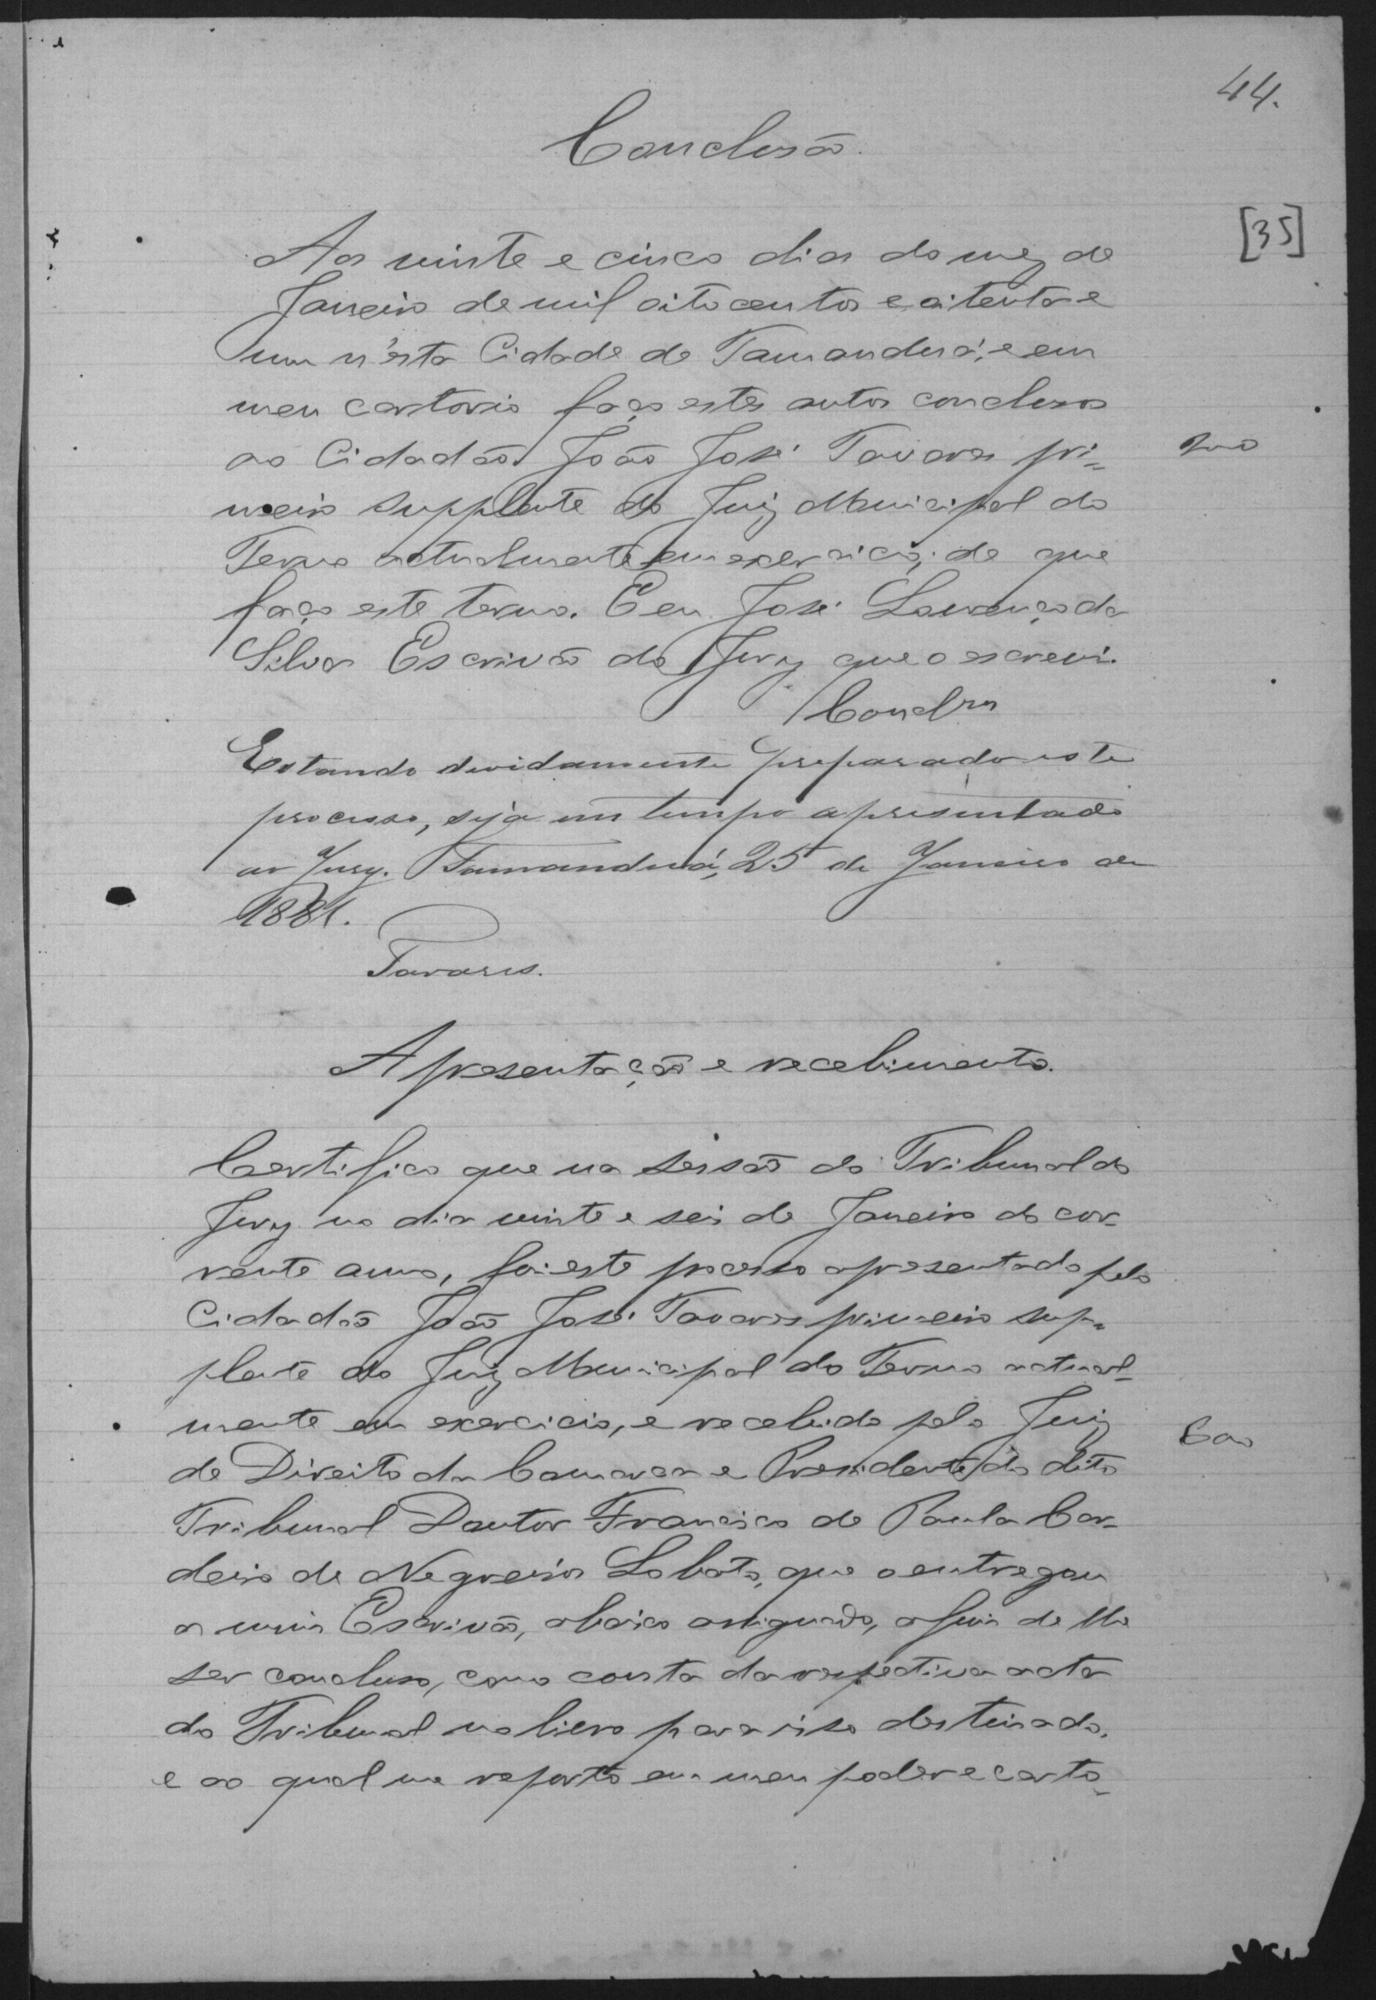 44.
Conclusão.
[35]
Aos vinte e cinco dias do mez de
Janeiro de mil oito centos e oitenta e
um n'esta Cidade de Tamanduá, e em
meu cartorio faço estes autos conclusos
ao Cidadão João José Tavares pri-
meiro supplente do Juiz Municipal do
Termo actualmente em exercicio, de que
faço este termo. E eu José Lourenço da
Silva Escrivão do Jury que o escrevi.
Estando devidamente preparado este
processo, seja em tempo apresentado
ao Jury. Tamanduá, 25 de Janeiro de
1881.
Tavares.
Apresentação e recebimento.
Certifico que na sessão do Tribunal do
Jury no dia vinte e seis de Janeiro do cor-
rente anno, foi este processo apresentado pelo
Cidadão João José Tavares primeiro sup-
plente do Juiz Municipal do Termo actual-
mente em exercicio, e recebido pelo Juiz
de Direito da Comarca e Presidente do dito
Tribunal Doutor Francisco de Paula Cor-
deiro de Negreiros Lobato, que o entregou
a mim Escrivão, abaixo assignado, a fim de lhe
ser concluso, como consta da respectiva acta
do Tribunal no livro para isso destinado,
e ao qual me reporto em meu poder e carto-